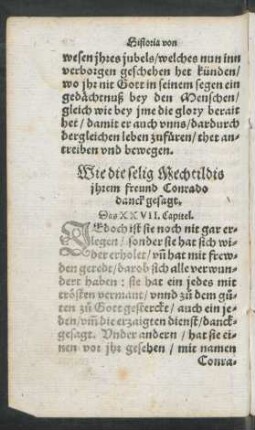 Historia von
wesen jhres jubels/welches nun inn
verborgen geschehen het künden/
wo jhr nit Gott in seinem segen ein
gedächtnuß bey den Menschen/
gleich wie bey jme die glory berait
het/damit er auch vnns/dardurch
dergleichen leben zufüren/thet an-
treiben vnd bewegen.
Wie die selig Mechtildis
jhrem freund Conrado
danck gesagt.
Das XXVII. Capitel.
JEdoch ist sie noch nit gar er-
legen/sonder sie hat sich wi-
der erholet/vñ hat mit frew-
den geredt/darob sich all verwun-
dert haben: sie hat ein jedes mit
trösten vermant/vnnd zů dem gů-
ten zů Gott gesterckt/auch ein je-
den/vm̃ die erzaigten dienst/danck-
gesagt. Vnder andern/hat sie ei-
nen vor jhr gesehen/mit namen
Conra-